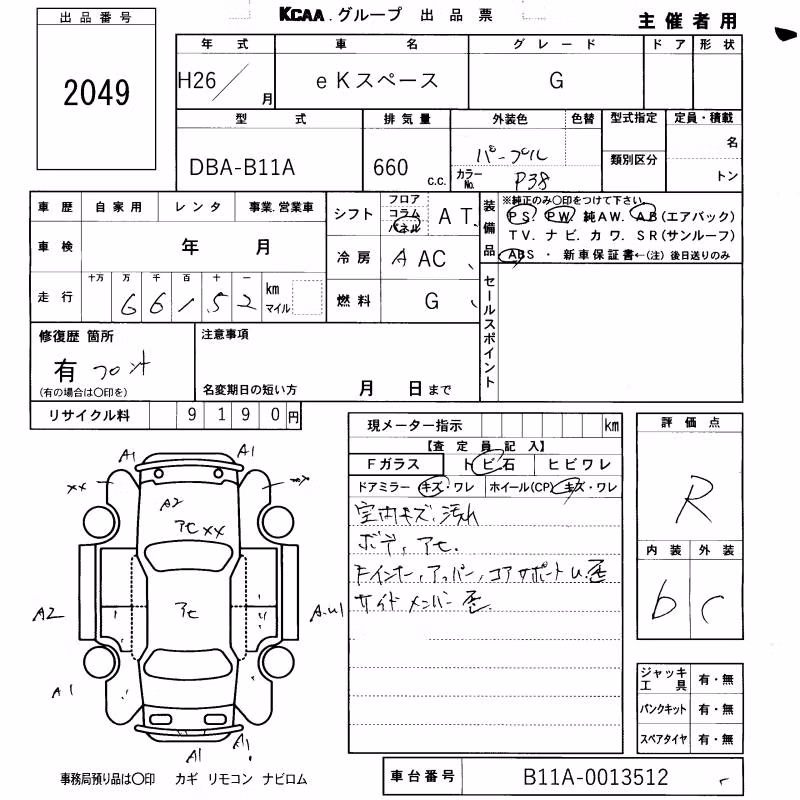 出品番号
2049
KCAA.グループ 出品票
主催者用
年式 車名 グレード ドア 形状
H26／ 月 eKスペース G
型式 排気量 外装色 色替 型式指定 定員・積載
DBA-B11A 660 c.c. パープル 名
カラーNo. P38 類別区分 トン
車歴 自家用 レンタ 事業.営業車
車検 年 月
走行 十万 万 千 百 十 一 km マイル
66152
シフト フロア コラム パネル AT
冷房 A AC
燃料 G
装備品 ※純正のみ〇印をつけて下さい。
PS PW 純AW. AB(エアバック)
TV. ナビ. カワ. SR(サンルーフ)
ABS ・ 新車保証書←(注) 後日送りのみ
セールスポイント
修復歴 箇所
有 フロント
(有の場合は〇印を)
注意事項
名変期日の短い方 月 日まで
リサイクル料 9190円
現メーター指示 km
【査定員記入】
Fガラス トビ石 ヒビワレ
ドアミラー キズ・ワレ ホイール(CP) キズ・ワレ
室内キズ、汚れ
ボデ、アセ.
Fインナー, アッパー, コアサポートU.歪
サイドメンバー歪.
評価点
R
内装 外装
b c
ジャッキ工具 有・無
パンクキット 有・無
スペアタイヤ 有・無
A1 A1
xx
A2
アセ xx
A2 アセ A.U1
A1
A1 A1
事務局預り品は〇印 カギ リモコン ナビロム
車台番号 B11A-0013512